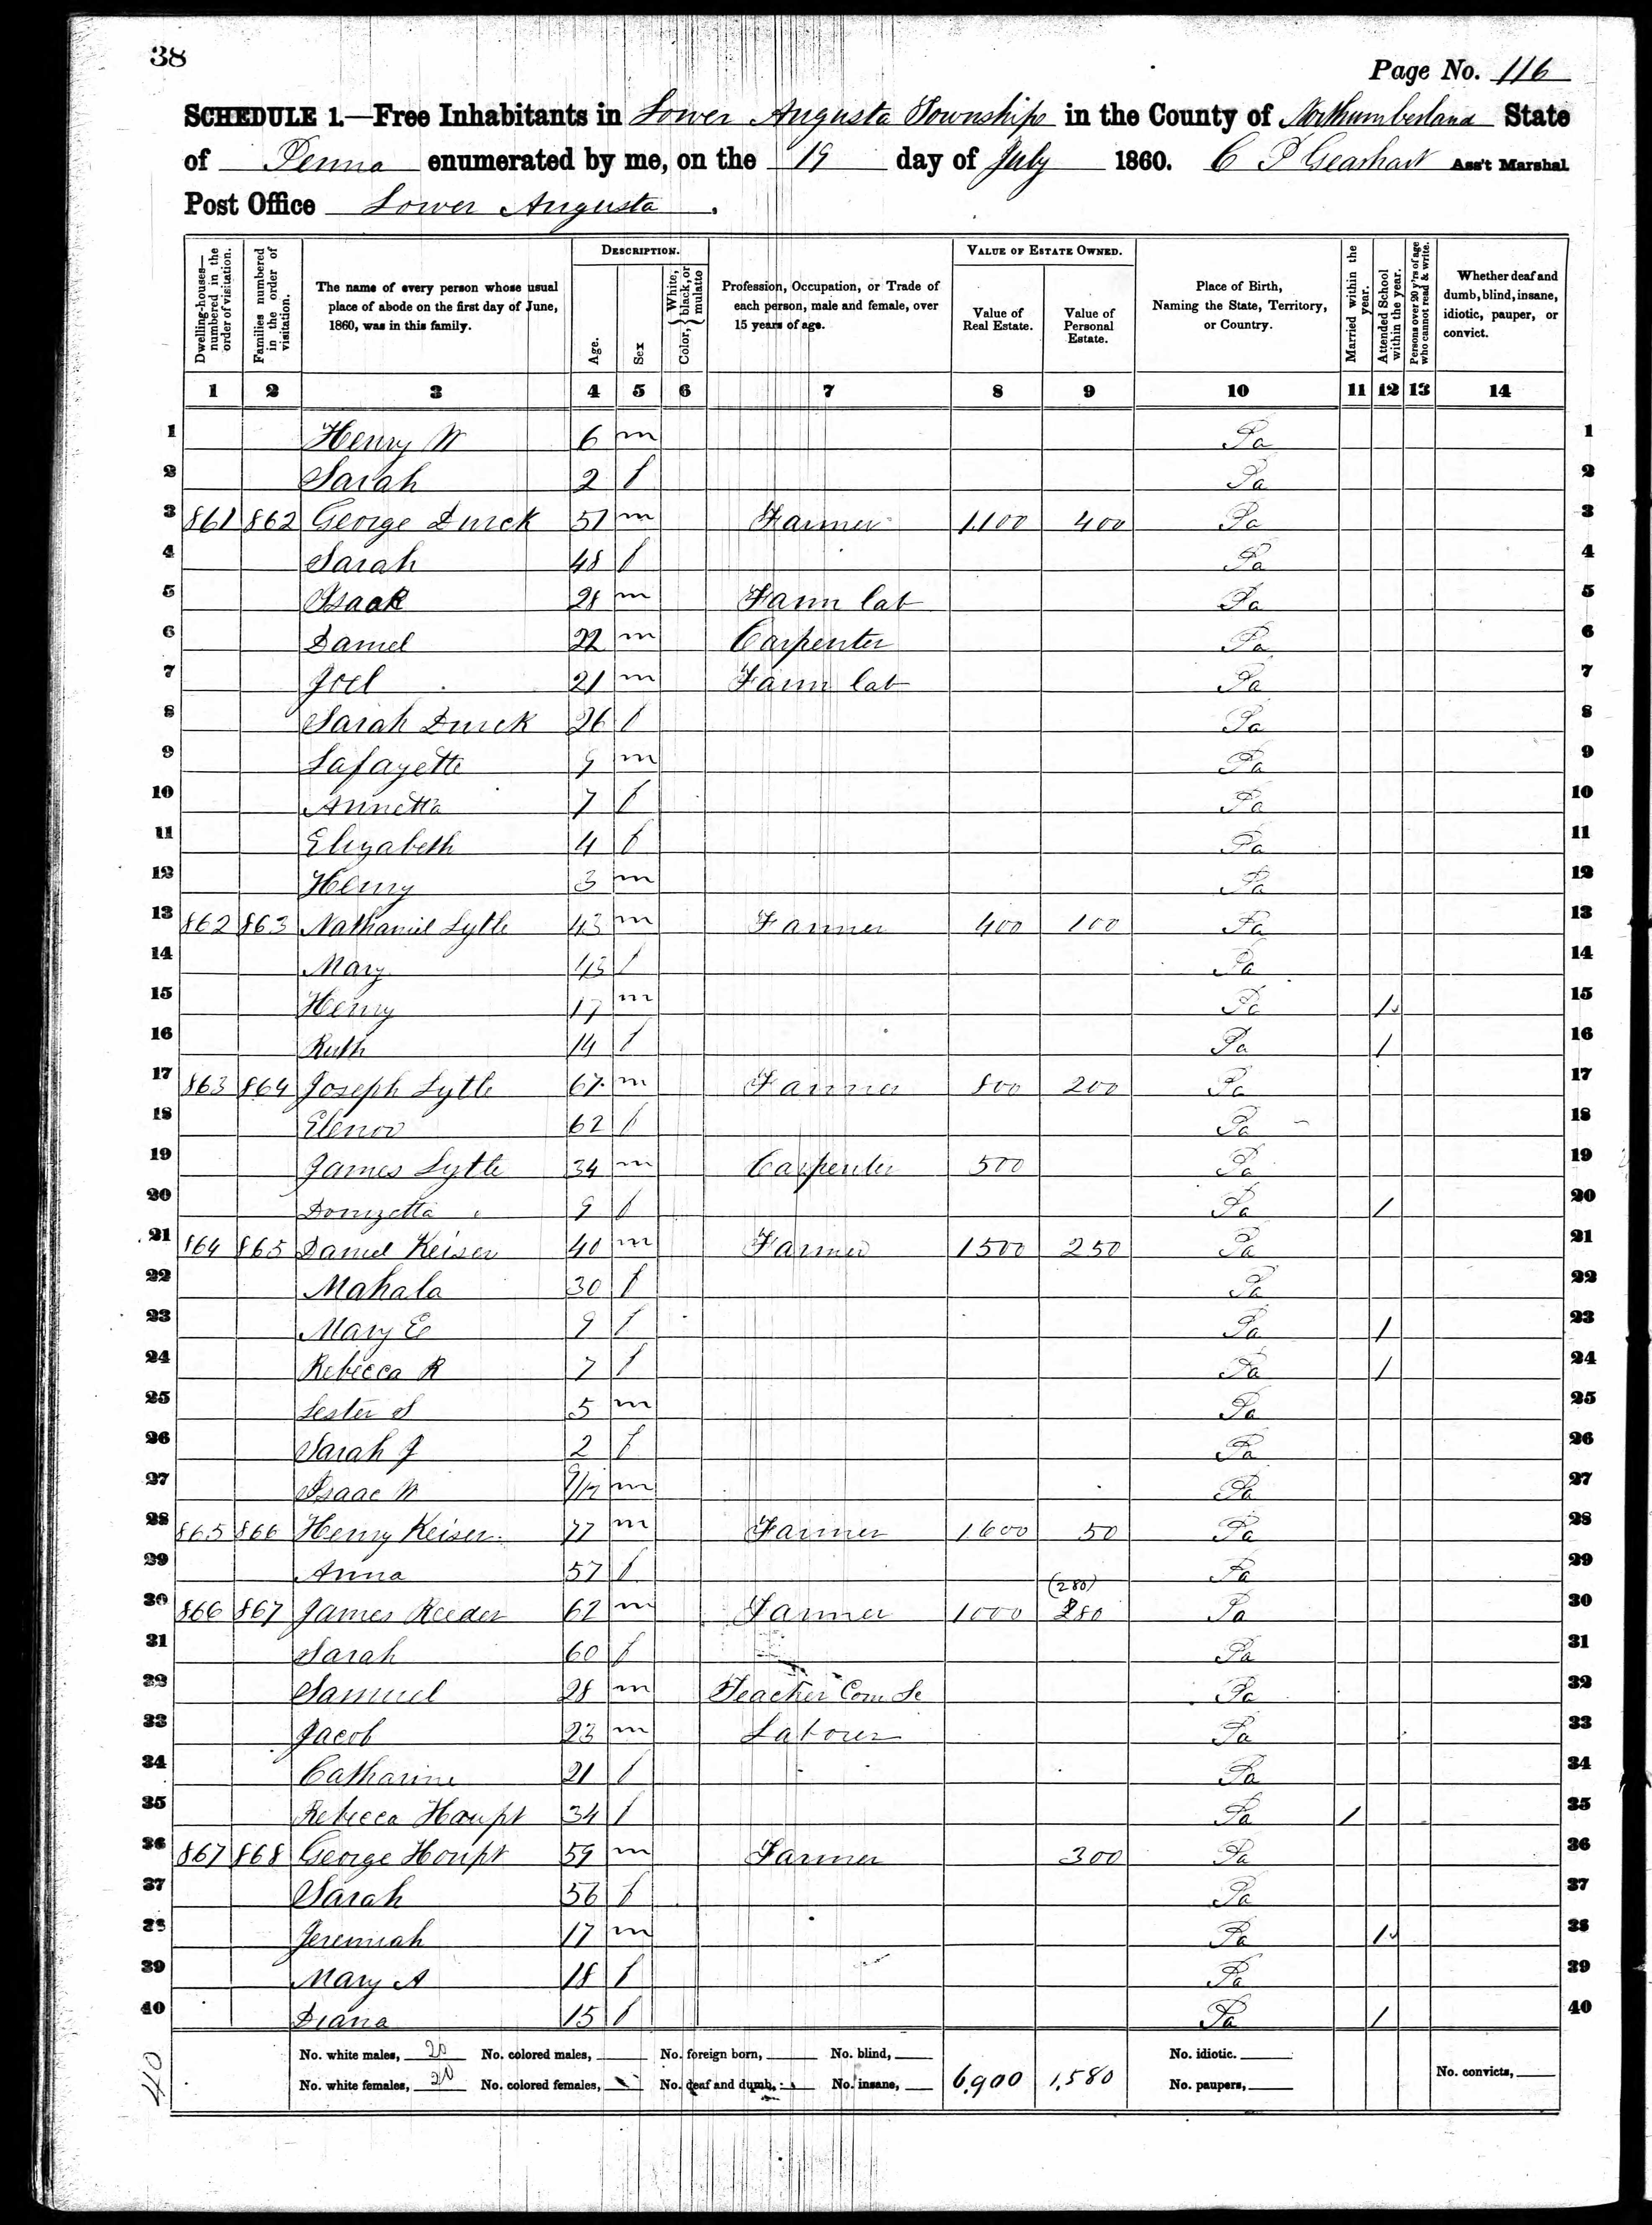 38
Page No. 116
SCHEDULE 1.—Free Inhabitants in Lower Augusta Township in the County of Northumberland State
of Penna enumerated by me, on the 19 day of July 1860. C P Gearhart Ass't Marshal
Post Office Lower Augusta.
DESCRIPTION. VALUE OF ESTATE OWNED.
Dwelling-houses—numbered in the order of visitation. Families numbered in the order of visitation. The name of every person whose usual place of abode on the first day of June, 1860, was in this family. Age. Sex Color, {White, black, or mulatto Profession, Occupation, or Trade of each person, male and female, over 15 years of age. Value of Real Estate. Value of Personal Estate. Place of Birth, Naming the State, Territory, or Country. Married within the year. Attended School within the year. Persons over 20 y'rs of age who cannot read & write. Whether deaf and dumb, blind, insane, idiotic, pauper, or convict.
1 2 3 4 5 6 7 8 9 10 11 12 13 14
1 Henry W 6 m Pa 1
2 Sarah 2 f Pa 2
3 861 862 George Durck 51 m Farmer 1100 400 Pa 3
4 Sarah 48 f Pa 4
5 Isaak 28 m Farm lab Pa 5
6 Daniel 22 m Carpenter Pa 6
7 Joel 21 m Farm lab Pa 7
8 Sarah Durck 26 f Pa 8
9 Lafayette 9 m Pa 9
10 Annetta 7 f Pa 10
11 Elizabeth 4 f Pa 11
12 Henry 3 m Pa 12
13 862 863 Nathaniel Lytle 43 m Farmer 400 100 Pa 13
14 Mary 43 f Pa 14
15 Henry 17 m Pa 1 15
16 Ruth 14 f Pa 1 16
17 863 864 Joseph Lytle 67 m Farmer 800 200 Pa 17
18 Elenor 62 f Pa 18
19 James Lytle 34 m Carpenter 500 Pa 19
20 Donizetta 9 f Pa 1 20
21 864 865 Daniel Keiser 40 m Farmer 1500 250 Pa 21
22 Mahala 30 f Pa 22
23 Mary E 9 f Pa 1 23
24 Rebecca R 7 f Pa 1 24
25 Lester S 5 m Pa 25
26 Sarah J 2 f Pa 26
27 Isaac W 9/12 m Pa 27
28 865 866 Henry Keiser 77 m Farmer 1600 50 Pa 28
29 Anna 57 f Pa 29
(280)
30 866 867 James Reeder 62 m Farmer 1000 280 Pa 30
31 Sarah 60 f Pa 31
32 Samuel 28 m Teacher Com Sc Pa 32
33 Jacob 23 m Labourer Pa 33
34 Catharine 21 f Pa 34
35 Rebecca Haupt 34 f Pa 1 35
36 867 868 George Houpt 59 m Farmer 300 Pa 36
37 Sarah 56 f Pa 37
38 Jeremiah 17 m Pa 1 38
39 Mary A 18 f Pa 39
40 Diana 15 f Pa 1 40
No. white males, 20 No. colored males, No. foreign born, No. blind, No. idiotic.
No. white females, 20 No. colored females, No. deaf and dumb, No. insane, 6,900 1,580 No. paupers, No. convicts,
40